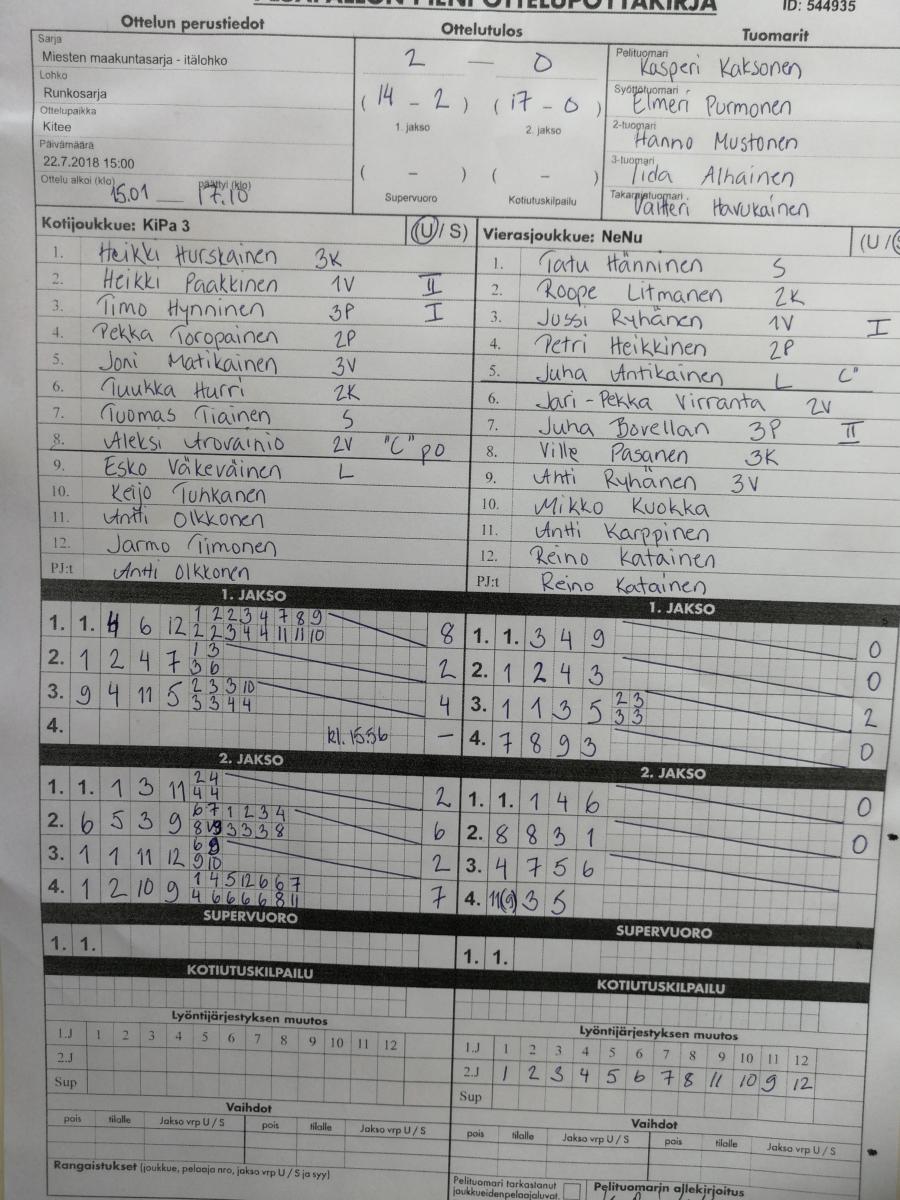 PESÄPALLON PIENI OTTELUPÖYTÄKIRJA
ID: 544935
Ottelun perustiedot
Sarja
Miesten maakuntasarja - itälohko
Lohko
Runkosarja
Ottelupaikka
Kitee
Päivämäärä
22.7.2018 15:00
Ottelu alkoi (klo) päättyi (klo)
15.01 17.10
Ottelutulos
2 — 0
(14 - 2) (17 - 0)
1. jakso 2. jakso
( - ) ( - )
Supervuoro Kotiutuskilpailu
Tuomarit
Pelituomari
Kasperi Kaksonen
Syöttötuomari
Elmeri Purmonen
2-tuomari
Hanno Mustonen
3-tuomari
Iida Alhainen
Takarajatuomari
Valtteri Havukainen
Kotijoukkue: KiPa 3 (U / S)
1. Heikki Hurskainen 3K
2. Heikki Paakkinen 1V II
3. Timo Hynninen 3P I
4. Pekka Toropainen 2P
5. Joni Matikainen 3V
6. Tuukka Hurri 2K
7. Tuomas Tiainen S
8. Aleksi Arovainio 2V "C" po
9. Esko Väkeväinen L
10. Keijo Tuhkanen
11. Antti Olkkonen
12. Jarmo Timonen
PJ:t Antti Olkkonen
Vierasjoukkue: NeNu (U /
1. Tatu Hänninen S
2. Roope Litmanen 2K
3. Jussi Ryhänen 1V I
4. Petri Heikkinen 2P
5. Juha Antikainen L C"
6. Jari-Pekka Virranta 2V
7. Juha Bovellan 3P II
8. Ville Pasanen 3K
9. Ahti Ryhänen 3V
10. Mikko Kuokka
11. Antti Karppinen
12. Reino Katainen
PJ:t Reino Katainen
1. JAKSO
1. 1. 4 6 12 1 2 2 3 4 7 8 9 8
2 2 3 4 4 11 11 10
2. 1 2 4 7 1 3 2
3 6
3. 9 4 11 5 2 3 3 10 4
3 3 4 4
4. kl. 15.56 –
1. JAKSO
1. 1. 3 4 9 0
2. 1 2 4 3 0
3. 1 1 3 5 2 3 2
3 3
4. 7 8 9 3 0
2. JAKSO
1. 1. 1 3 11 2 4 2
4 4
2. 6 5 3 9 6 7 1 2 3 4 6
8 9 3 3 3 8
3. 1 1 11 12 6 9 2
9 10
4. 1 2 10 9 1 4 5 12 6 6 7 7
4 6 6 6 6 8 11
2. JAKSO
1. 1. 1 4 6 0
2. 8 8 3 1 0
3. 4 7 5 6
4. 11(9) 3 5
SUPERVUORO
1. 1.
SUPERVUORO
1. 1.
KOTIUTUSKILPAILU
KOTIUTUSKILPAILU
Lyöntijärjestyksen muutos
1.J 1 2 3 4 5 6 7 8 9 10 11 12
2.J
Sup
Lyöntijärjestyksen muutos
1.J 1 2 3 4 5 6 7 8 9 10 11 12
2.J 1 2 3 4 5 6 7 8 11 10 9 12
Sup
Vaihdot
pois tilalle Jakso vrp U / S pois tilalle Jakso vrp U / S
Vaihdot
pois tilalle Jakso vrp U / S pois tilalle Jakso vrp U / S
Rangaistukset (joukkue, pelaaja nro, jakso vrp U / S ja syy)
Pelituomari tarkastanut
joukkueidenpelaajaluvat.
Pelituomarin allekirjoitus